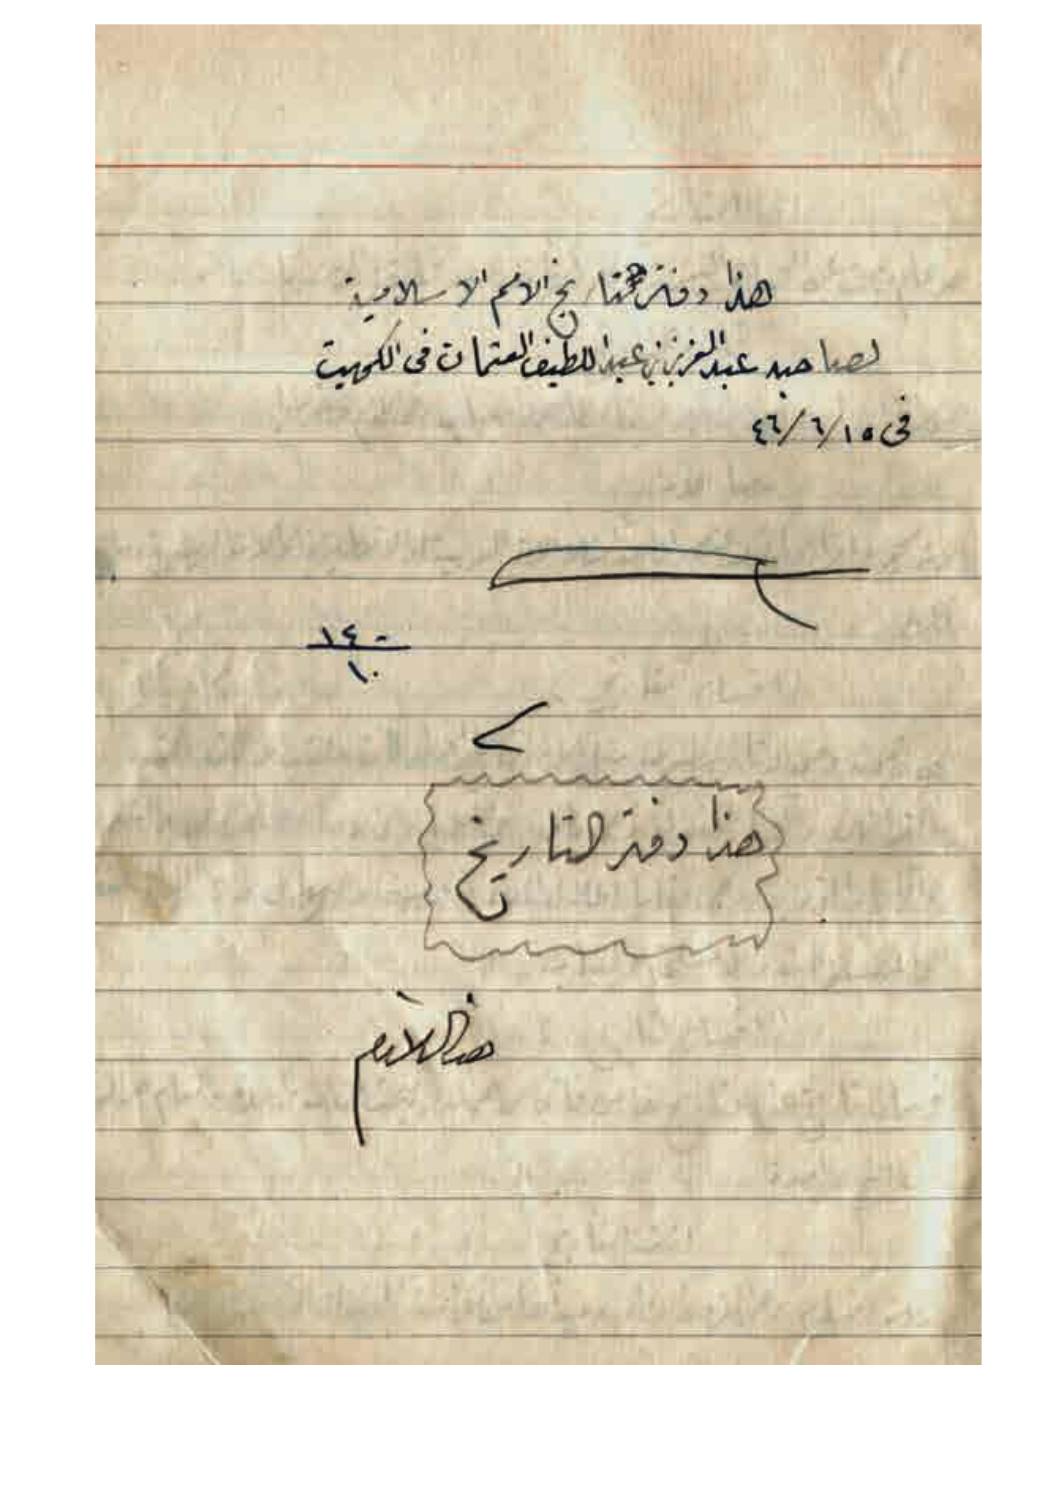 هذا دفتر تاريخ الامم الاسلامية
لصاحبه عبدالعزيز بن عبداللطيف العثمان فى الكويت
فى ١٥/٦/٤٦
١٤٠
١٠
هذا دفتر التاريخ